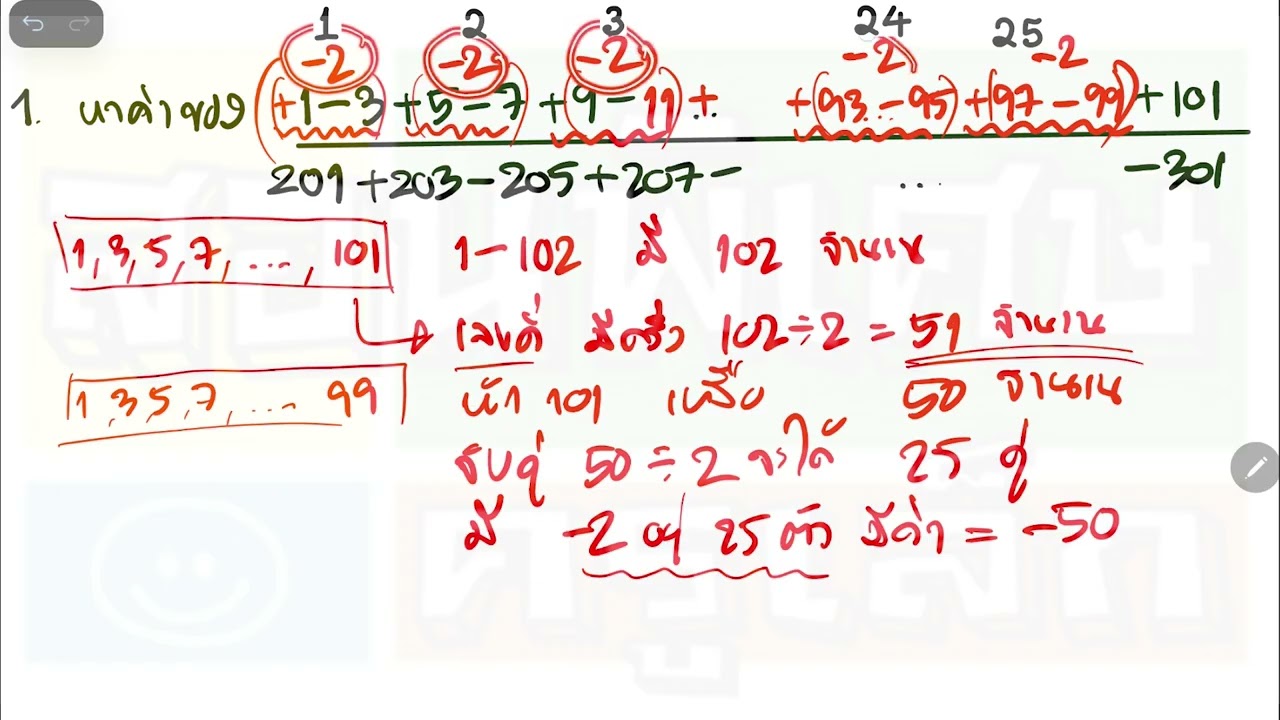 1 2 3 24 25
-2 -2 -2 -2 -2
1. หาค่าของ +1-3 +5-7 +9-11 + ... +(93...-95)+(97-99)+101
201+203-205+207- ... -301
1,3,5,7, ..., 101 1-102 มี 102 จำนวน
เลขคี่ มีครึ่ง 102÷2 = 51 จำนวน
1,3,5,7, ... 99 หัก 101 เหลือ 50 จำนวน
จับคู่ 50÷2 จะได้ 25 คู่
มี -2 อยู่ 25 ตัว มีค่า = -50
สอนพิเศษ
ครูเล็ก